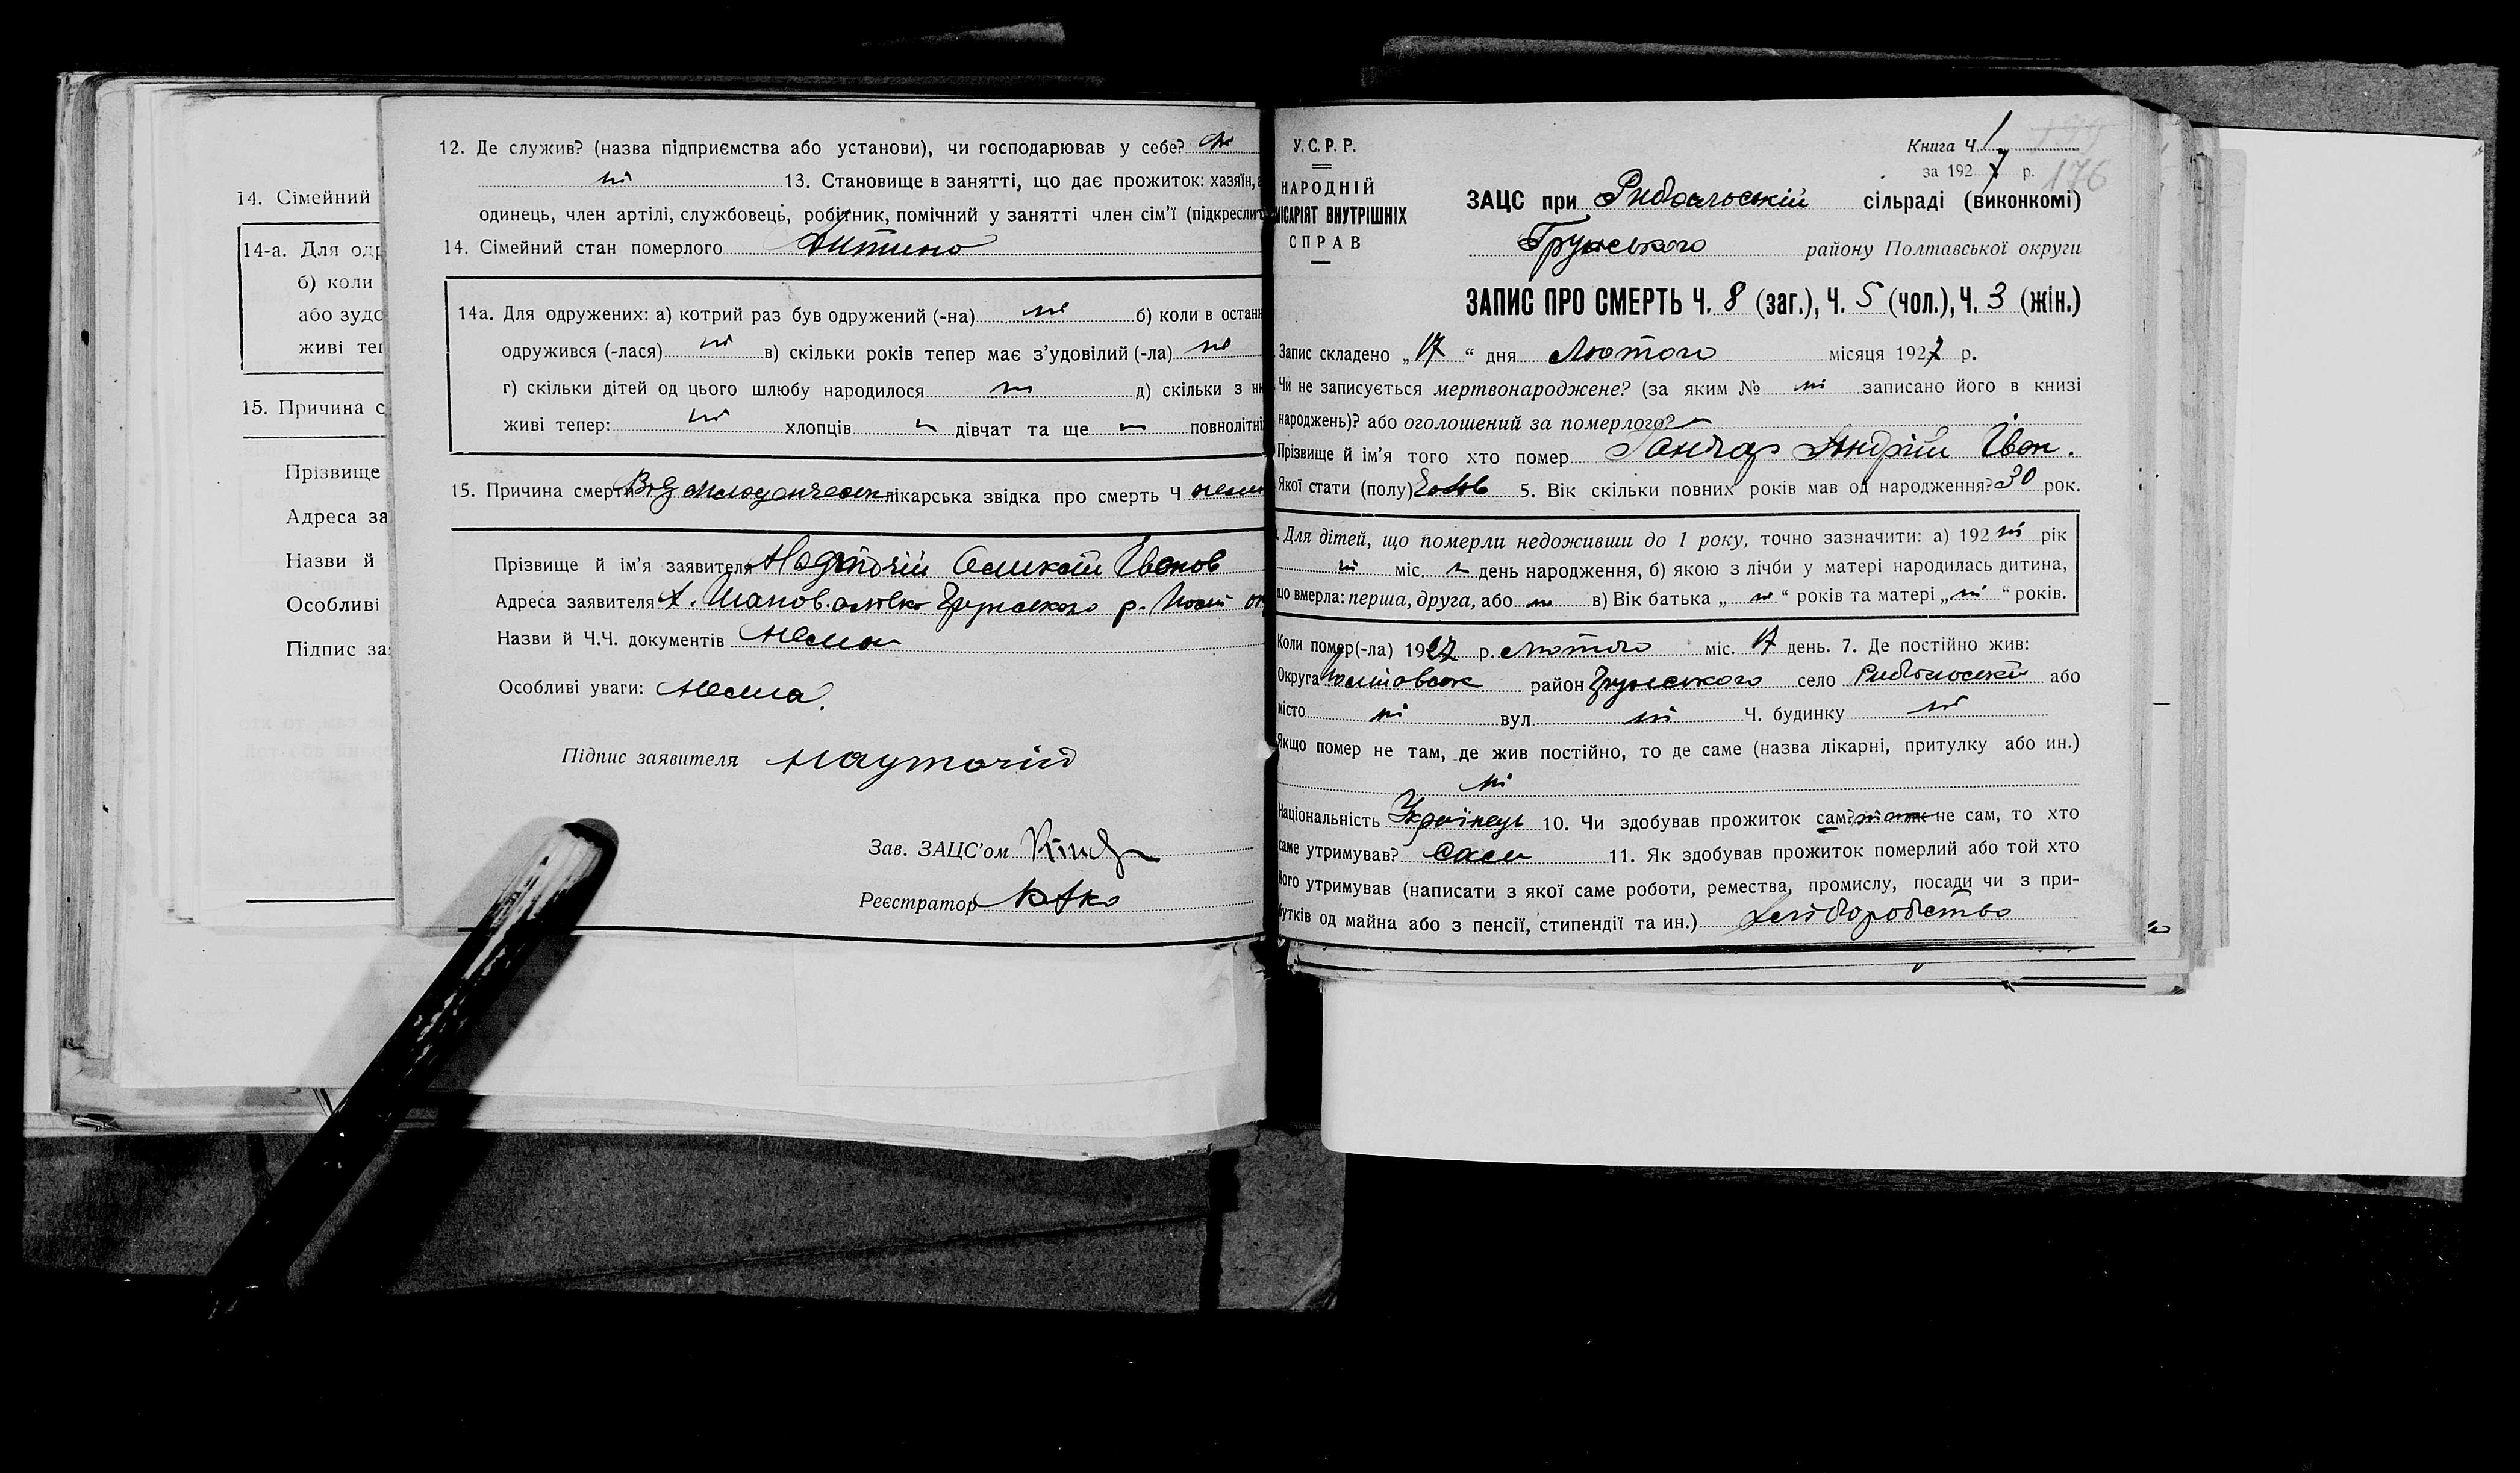 14. Сімейний
14-а. Для одр
б) коли
або зудо
живі тег
15. Причина с
Прізвище
Адреса за
Назви й
Особливі
Підпис за
12. Де служив? (назва підприємства або установи), чи господарював у себе? ні
ні 13. Становище в занятті, що дає прожиток: хазяїн,
одинець, член артілі, службовець, робітник, помічний у занятті член сім’ї (підкреслит
14. Сімейний стан померлого Дитина
14а. Для одружених: а) котрий раз був одружений (-на) ні б) коли в остан
одружився (-лася) ні в) скільки років тепер має з’удовілий (-ла) ні
г) скільки дітей од цього шлюбу народилося ні д) скільки з ни
живі тепер: ні хлопців дівчат та ще повнолітні
15. Причина смерти Від лікарська звідка про смерть Ч нема
Прізвище й ім’я заявителя Іванов
Адреса заявителя х. Грунського р.
Назви й Ч.Ч. документів Нема
Особливі уваги: Нема.
Підпис заявителя
Зав. ЗАЦС’ом
Реєстратор
У.С.Р.Р.
НАРОДНІЙ
МІСАРІЯТ ВНУТРІШНІХ
СПРАВ
Книга Ч. 1
за 1927 р.
176
ЗАЦС при Рибальській сільраді (виконкомі)
Грунського району Полтавської округи
ЗАПИС ПРО СМЕРТЬ Ч. 8 (заг.), Ч. 5 (чол.), Ч. 3 (жін.)
Запис складено „17“ дня Лютого місяця 1927 р.
Чи не записується мертвонароджене? (за яким № ні записано його в книзі
народжень)? або оголошений за померлого?
Прізвище й ім’я того хто помер Гончар Андрій Іван.
Якої стати (полу) 5. Вік скільки повних років мав од народження? 30 рок.
. Для дітей, що померли недоживши до 1 року, точно зазначити: а) 192 ні рік
ні міс. день народження, б) якою з лічби у матері народилась дитина,
що вмерла: перша, друга, або ні в) Вік батька „ ні “ років та матері „ ні “ років.
Коли помер(-ла) 1927 р. лютого міс. 17 день. 7. Де постійно жив:
Округа район Грунського село Рибальській або
місто ні вул. ні Ч. будинку ні
Якщо помер не там, де жив постійно, то де саме (назва лікарні, притулку або ин.)
ні
Національність Українець 10. Чи здобував прожиток сам? не сам, то хто
саме утримував? сам 11. Як здобував прожиток померлий або той хто
його утримував (написати з якої саме роботи, ремества, промислу, посади чи з при-
бутків од майна або з пенсії, стипендії та ин.) хліборобство